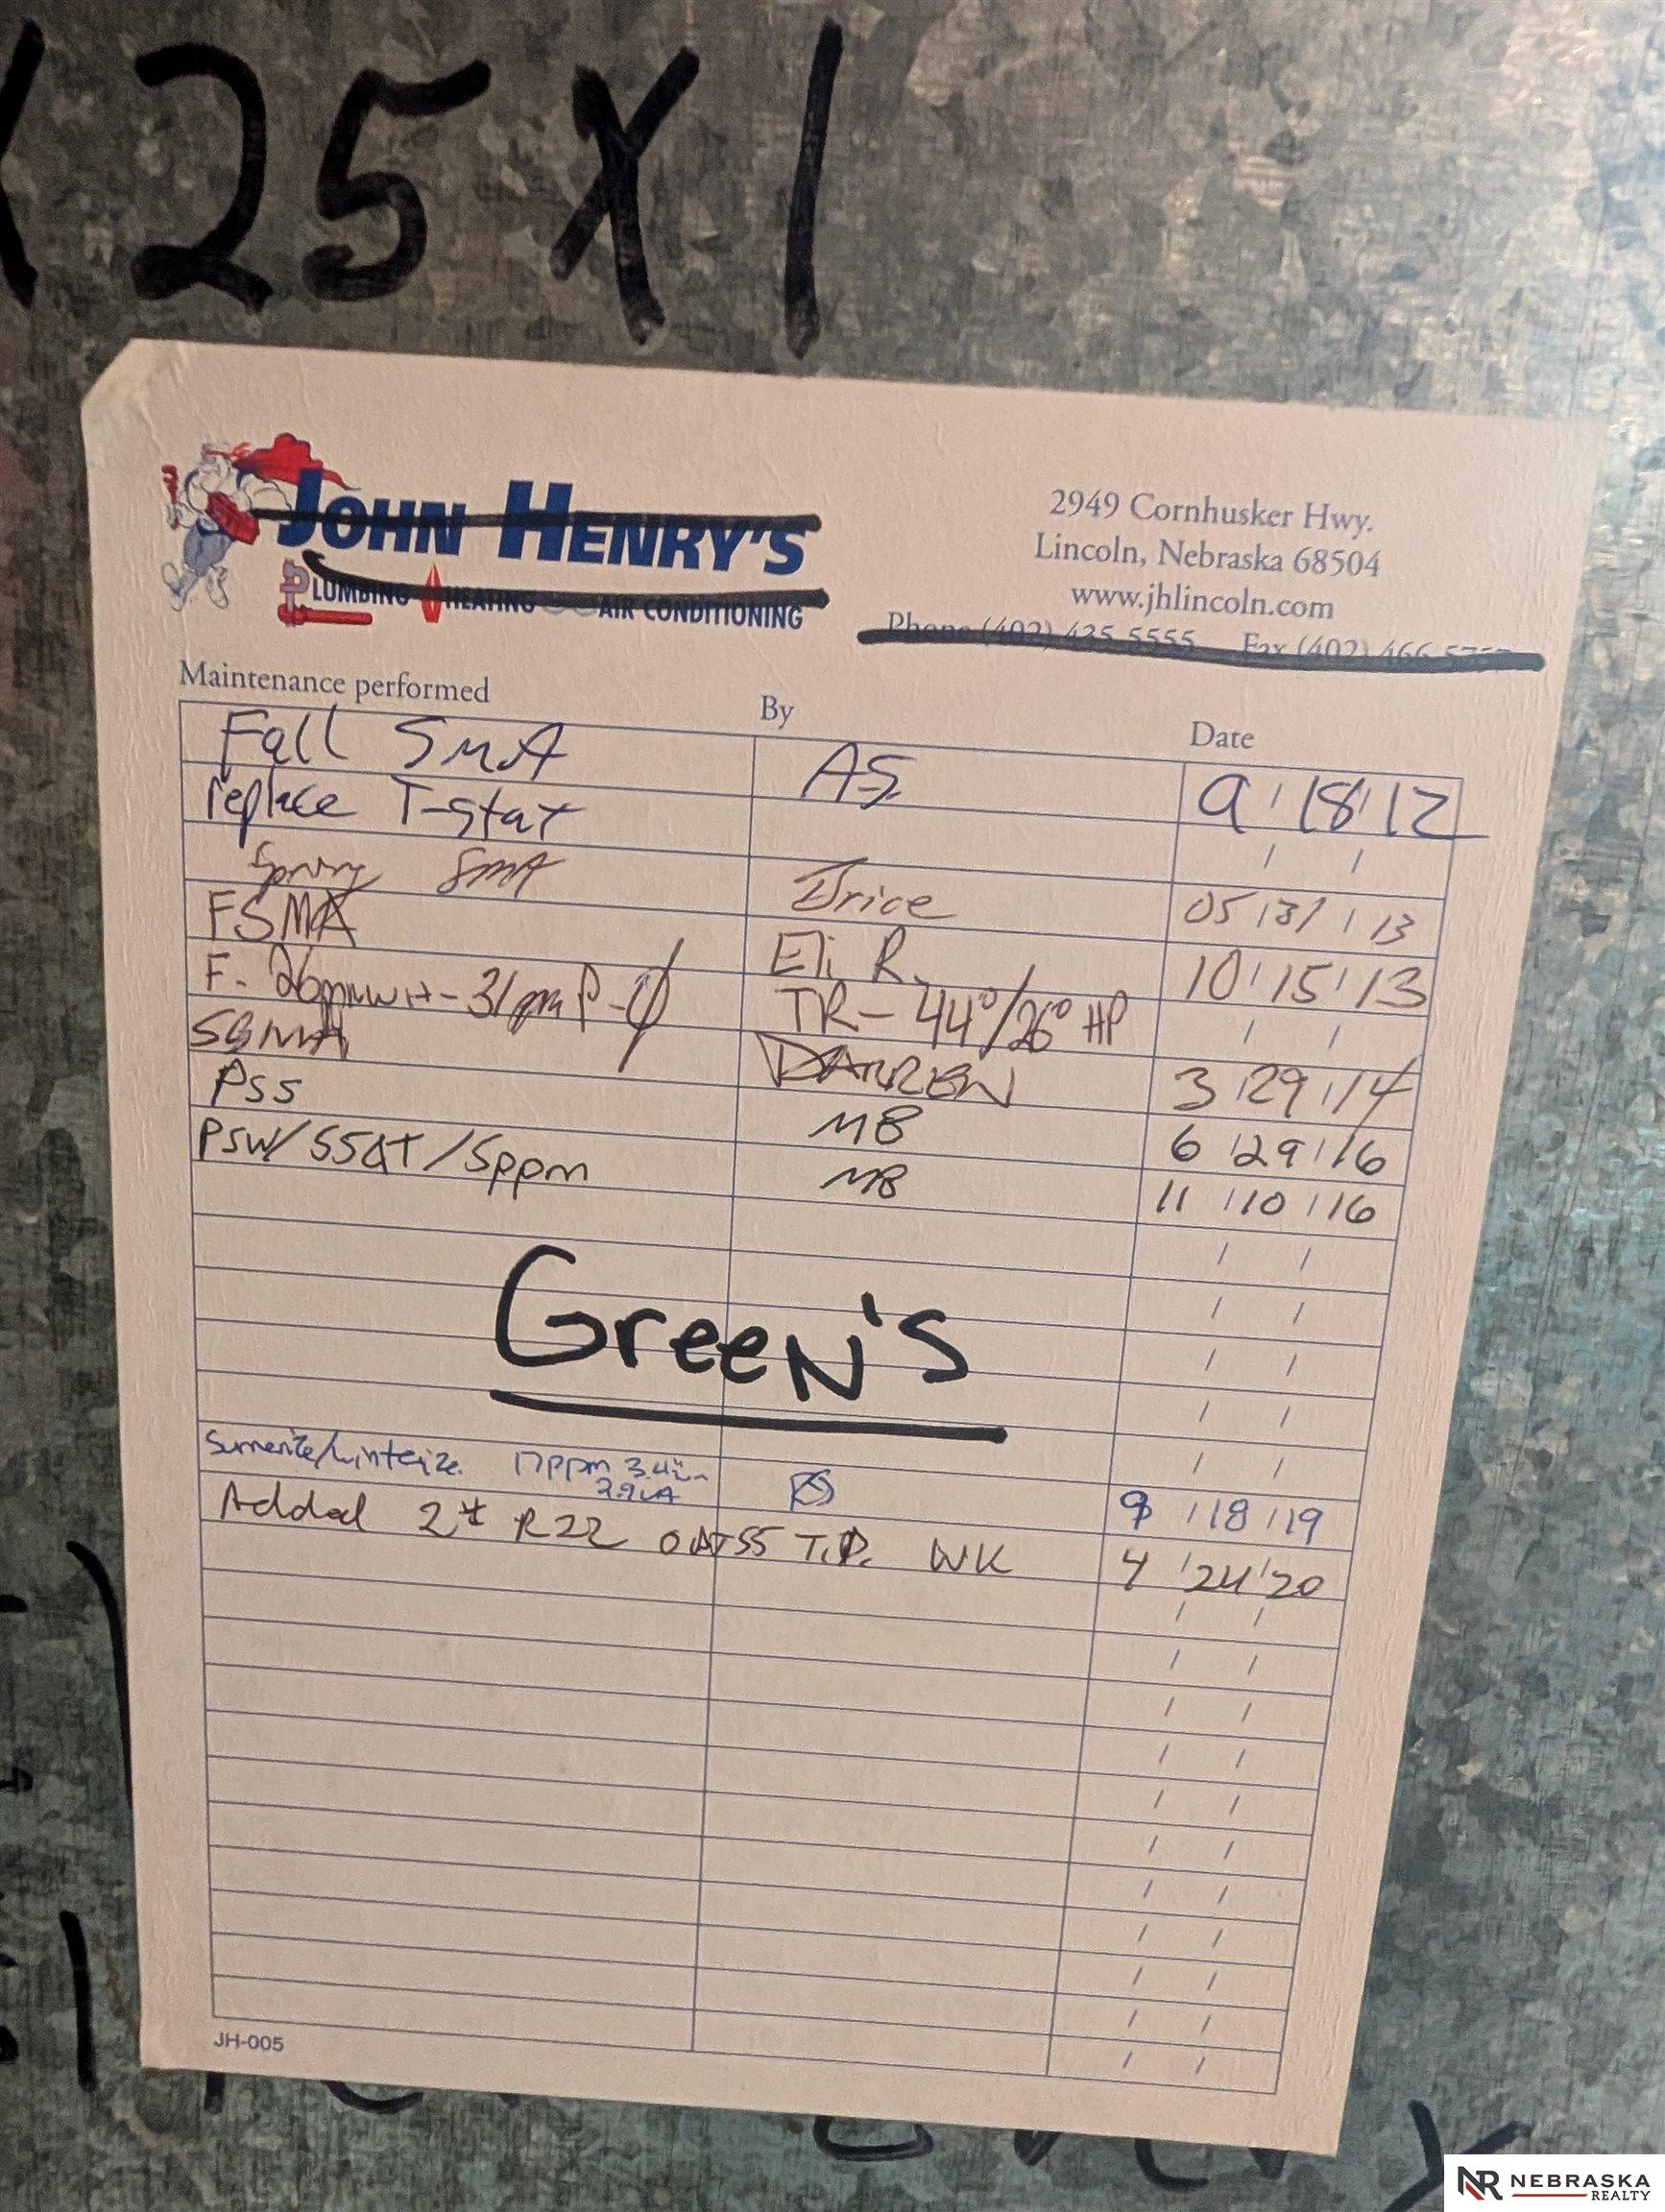 25 X 1
JOHN HENRY'S
PLUMBING HEATING AIR CONDITIONING
2949 Cornhusker Hwy.
Lincoln, Nebraska 68504
www.jhlincoln.com
Phone (402) 435-5555 Fax (402) 466
Maintenance performed By Date
Fall SMA AS 9/18/12
replace T-stat
Spring SMA 05/31/13
FSMA Eli R. 10/15/13
F. 26ppm WH-31ppm TR-44°/26° HP
DARREN 3/29/14
PSS MB 6/29/16
PSW/SSAT/5ppm MB 11/10/16
GreeN's
17ppm 9/18/19
Added 2# R22 OAT 55 WK 4/24/20
JH-005
NR NEBRASKA
REALTY